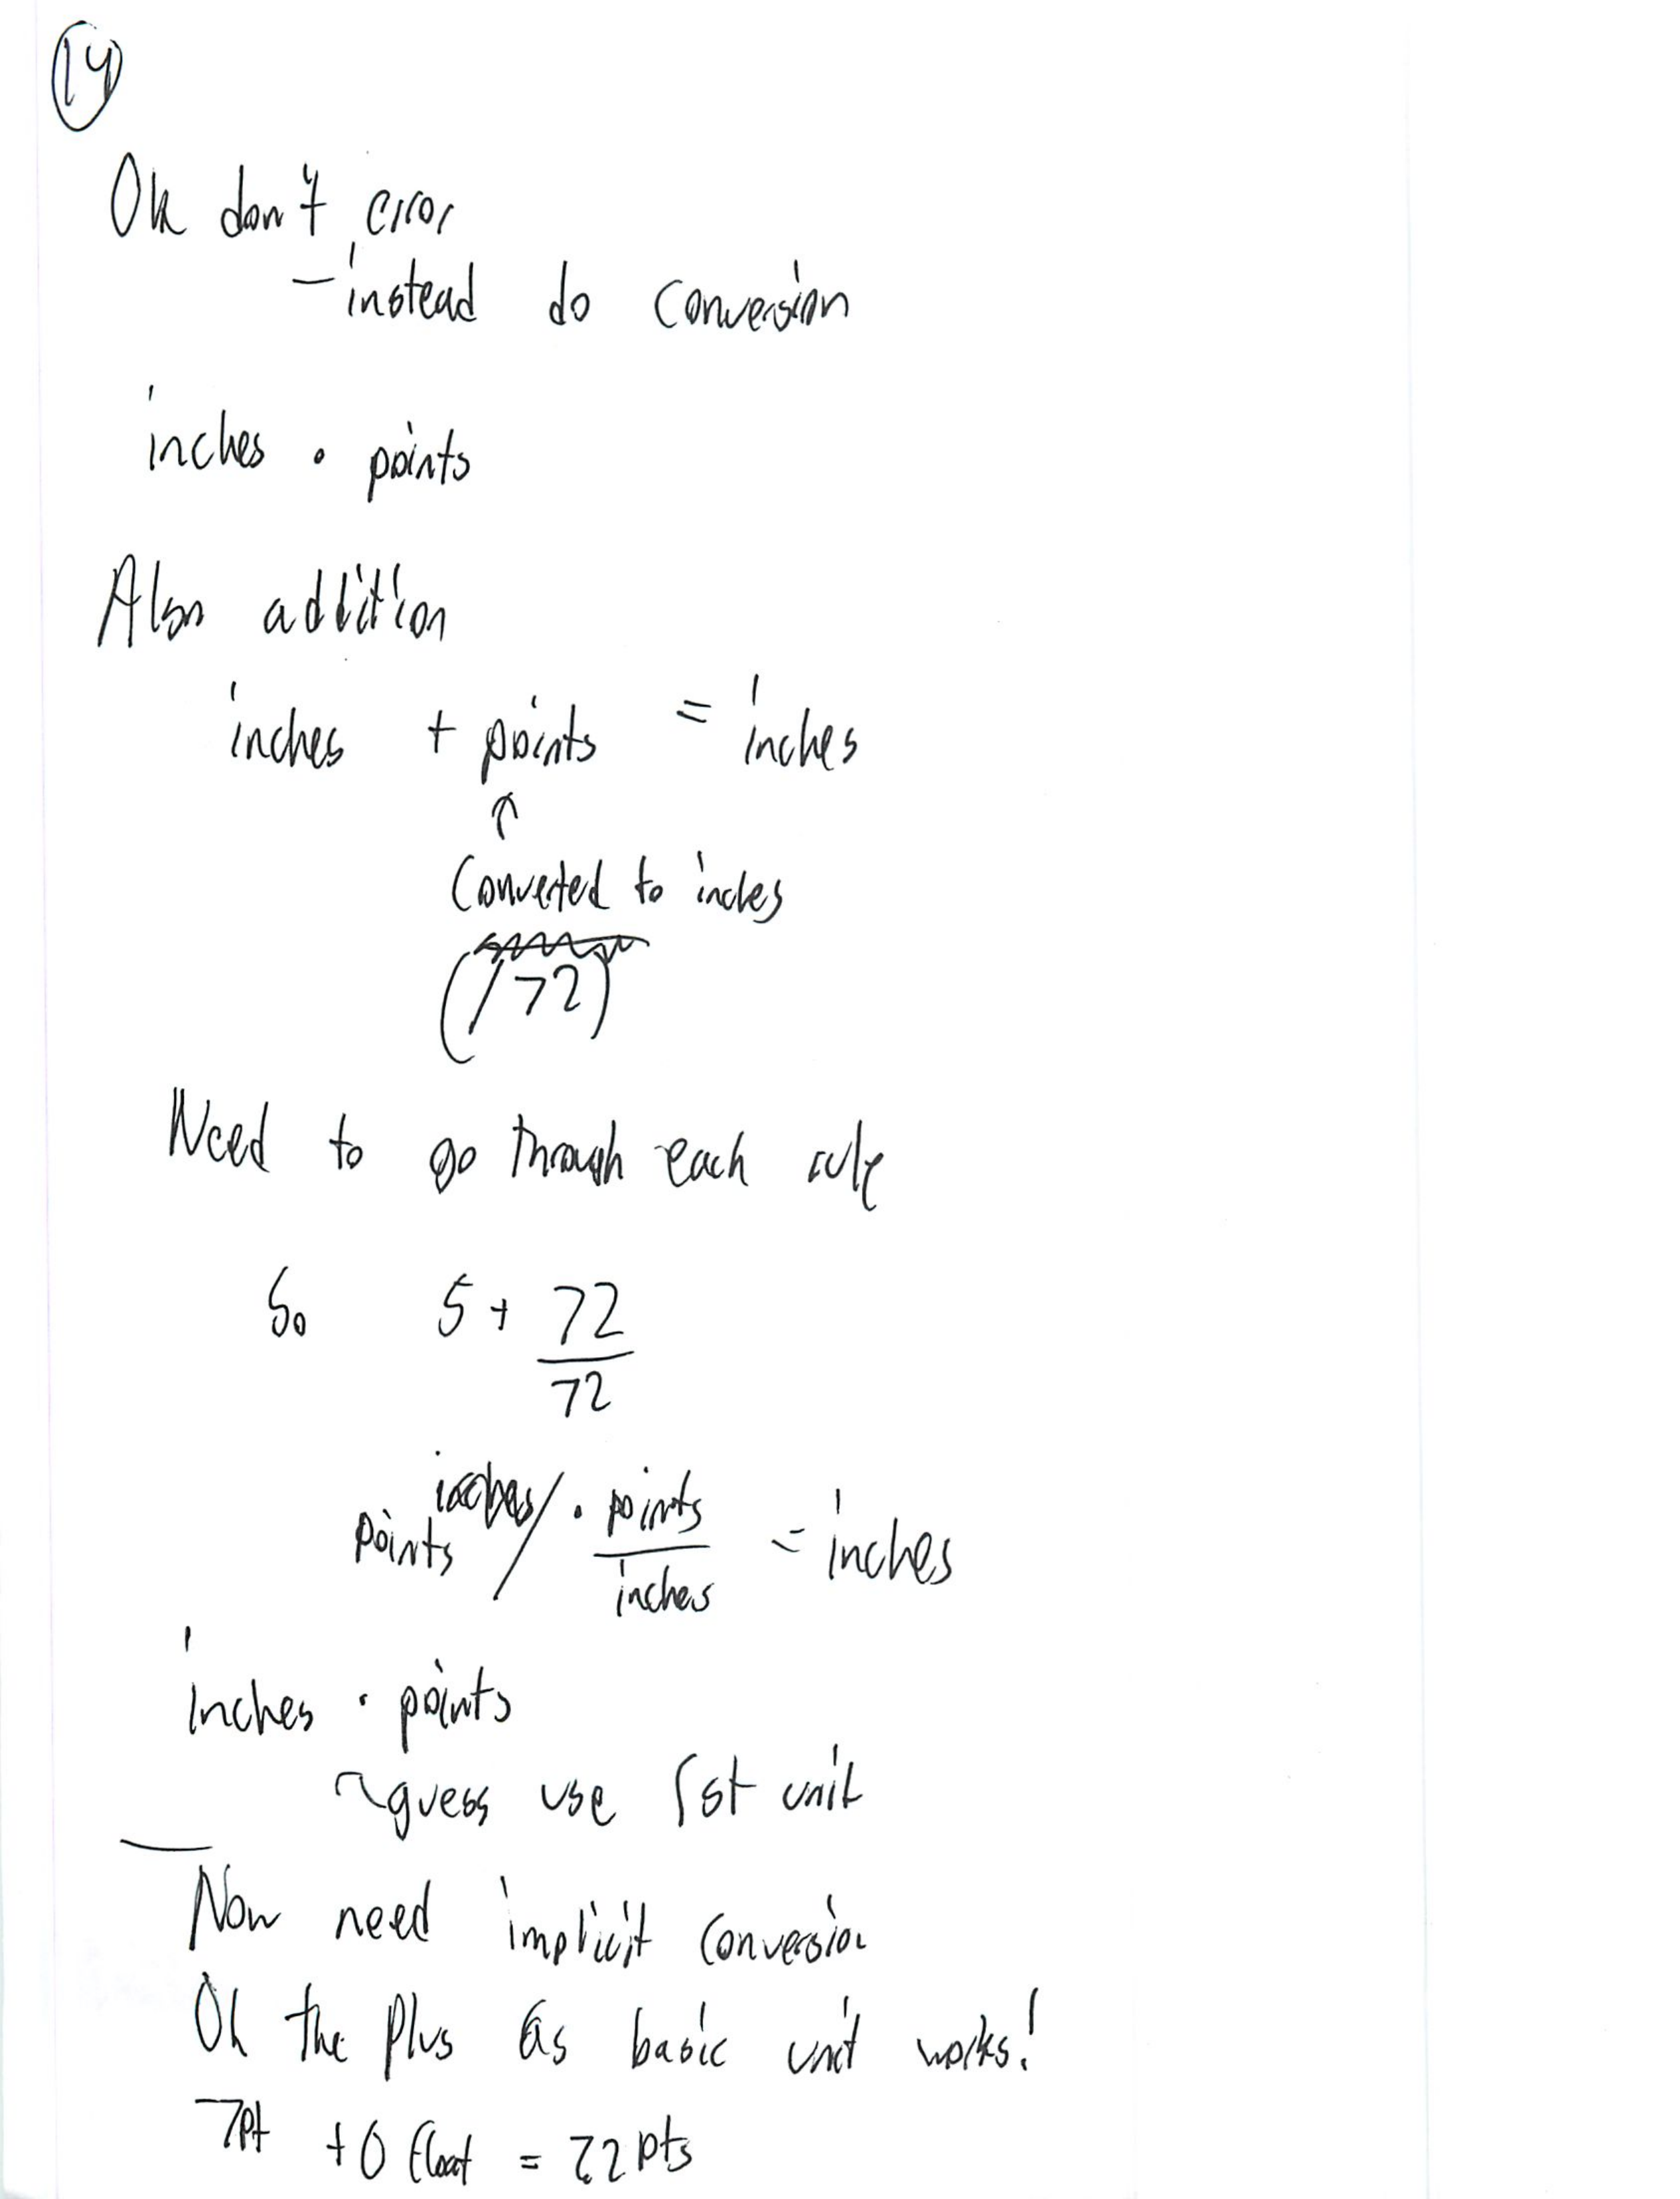 14
Ok don't error
- instead do conversion
inches · points
Also addition
inches + points = inches
↑
Converted to inches
(/72)
Need to go through each rule
So 5 + 72
72
points inches / · points = inches
inches
inches · points
guess use 1st unit
Now need implicit conversion
Oh the plus as basic unit works!
+ 0 float = 72 pts